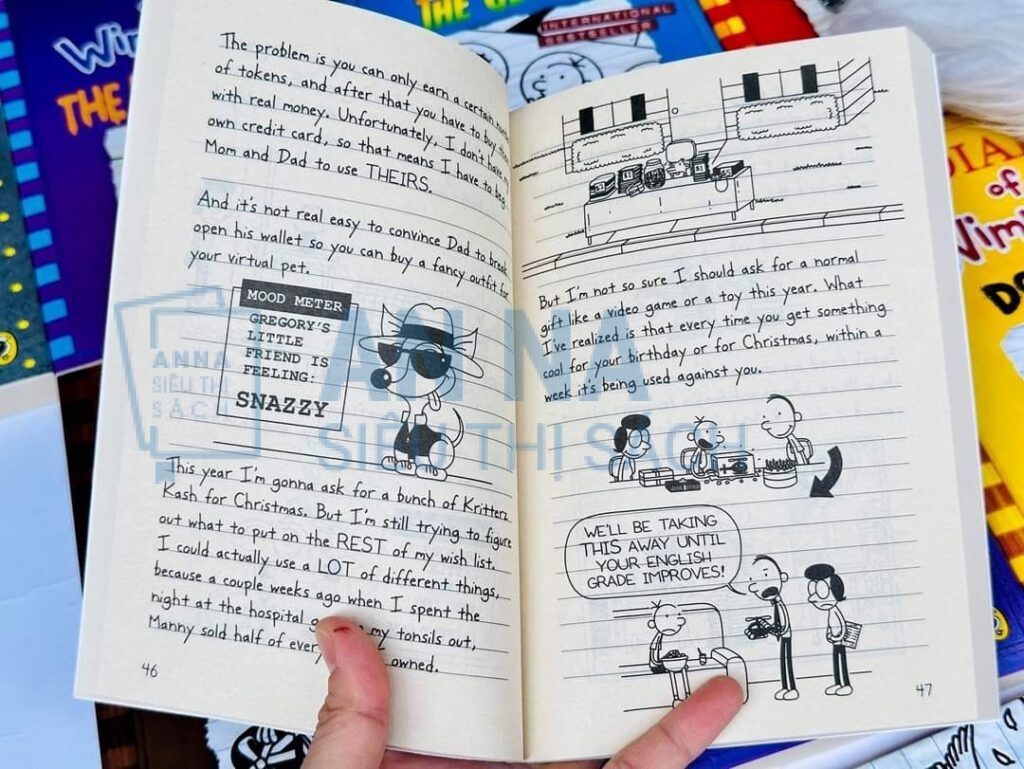 The problem is you can only earn a certain
of tokens, and after that you have to buy
with real money. Unfortunately, I don't have my
own credit card, so that means I have to beg
Mom and Dad to use THEIRS.
And it's not real easy to convince Dad to break
open his wallet so you can buy a fancy outfit for
your virtual pet.
MOOD METER
GREGORY'S
LITTLE
FRIEND IS
FEELING:
SNAZZY
This year I'm gonna ask for a bunch of Kritterz
Kash for Christmas. But I'm still trying to figure
out what to put on the REST of my wish list.
I could actually use a LOT of different things,
because a couple weeks ago when I spent the
night at the hospital my tonsils out,
Manny sold half of owned.
46
But I'm not so sure I should ask for a normal
gift like a video game or a toy this year. What
I've realized is that every time you get something
cool for your birthday or for Christmas, within a
week it's being used against you.
WE'LL BE TAKING
THIS AWAY UNTIL
YOUR ENGLISH
GRADE IMPROVES!
47
ANNA
SIÊU THỊ
SÁCH
AN NA
SIÊU THỊ SÁCH
THE
INTERNATIONAL
BESTSELLER
THE
of